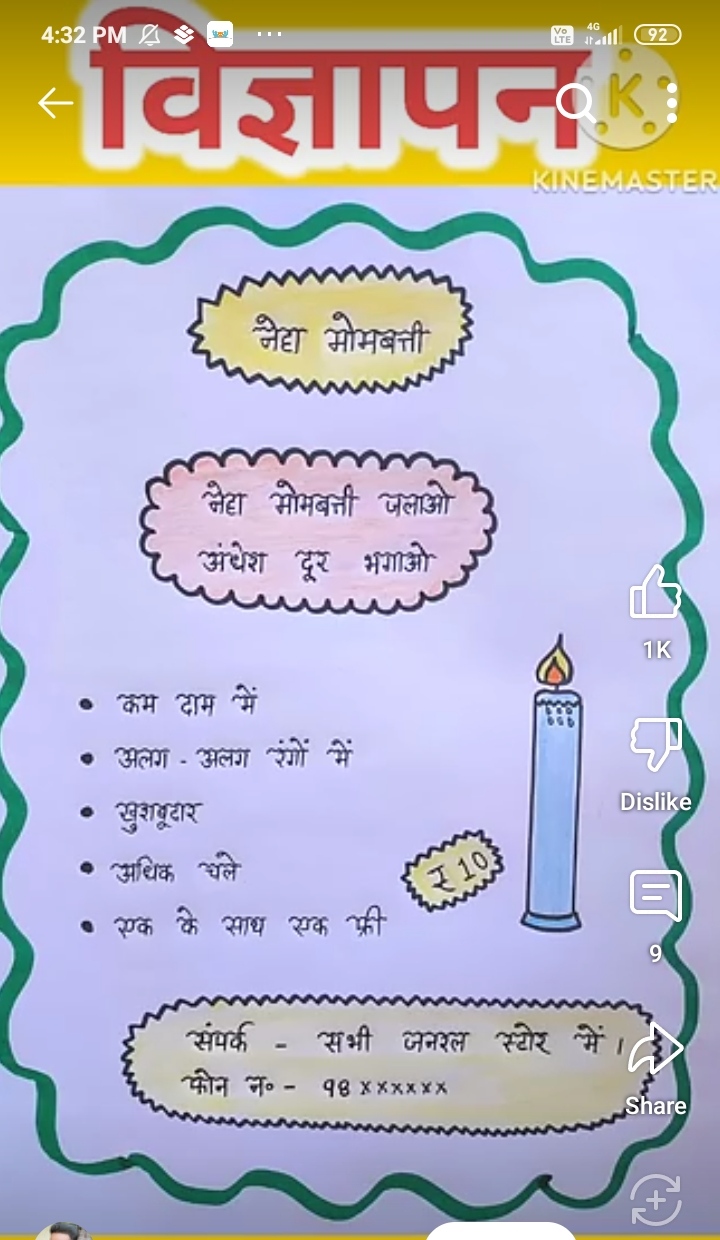 4:32 PM
Vo LTE 4G 92
विज्ञापन
K
KINEMASTER
नेहा मोमबत्ती
नेहा मोमबत्ती जलाओ
अंधेरा दूर भगाओ
1K
• कम दाम में
• अलग - अलग रंगों में
Dislike
• खुशबूदार
• अधिक चले
₹ 10
• एक के साथ एक फ्री
9
संपर्क - सभी जनरल स्टोर में ।
फोन न० - 98 xxxxxx
Share